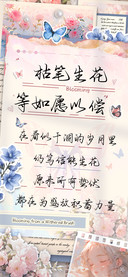 枯笔生花
Blooming
等如愿以偿
在看似干涸的岁月里
仍笃信能生花
原来所有蛰伏
都在为绽放积蓄力量
Blooming from a Withered Brush